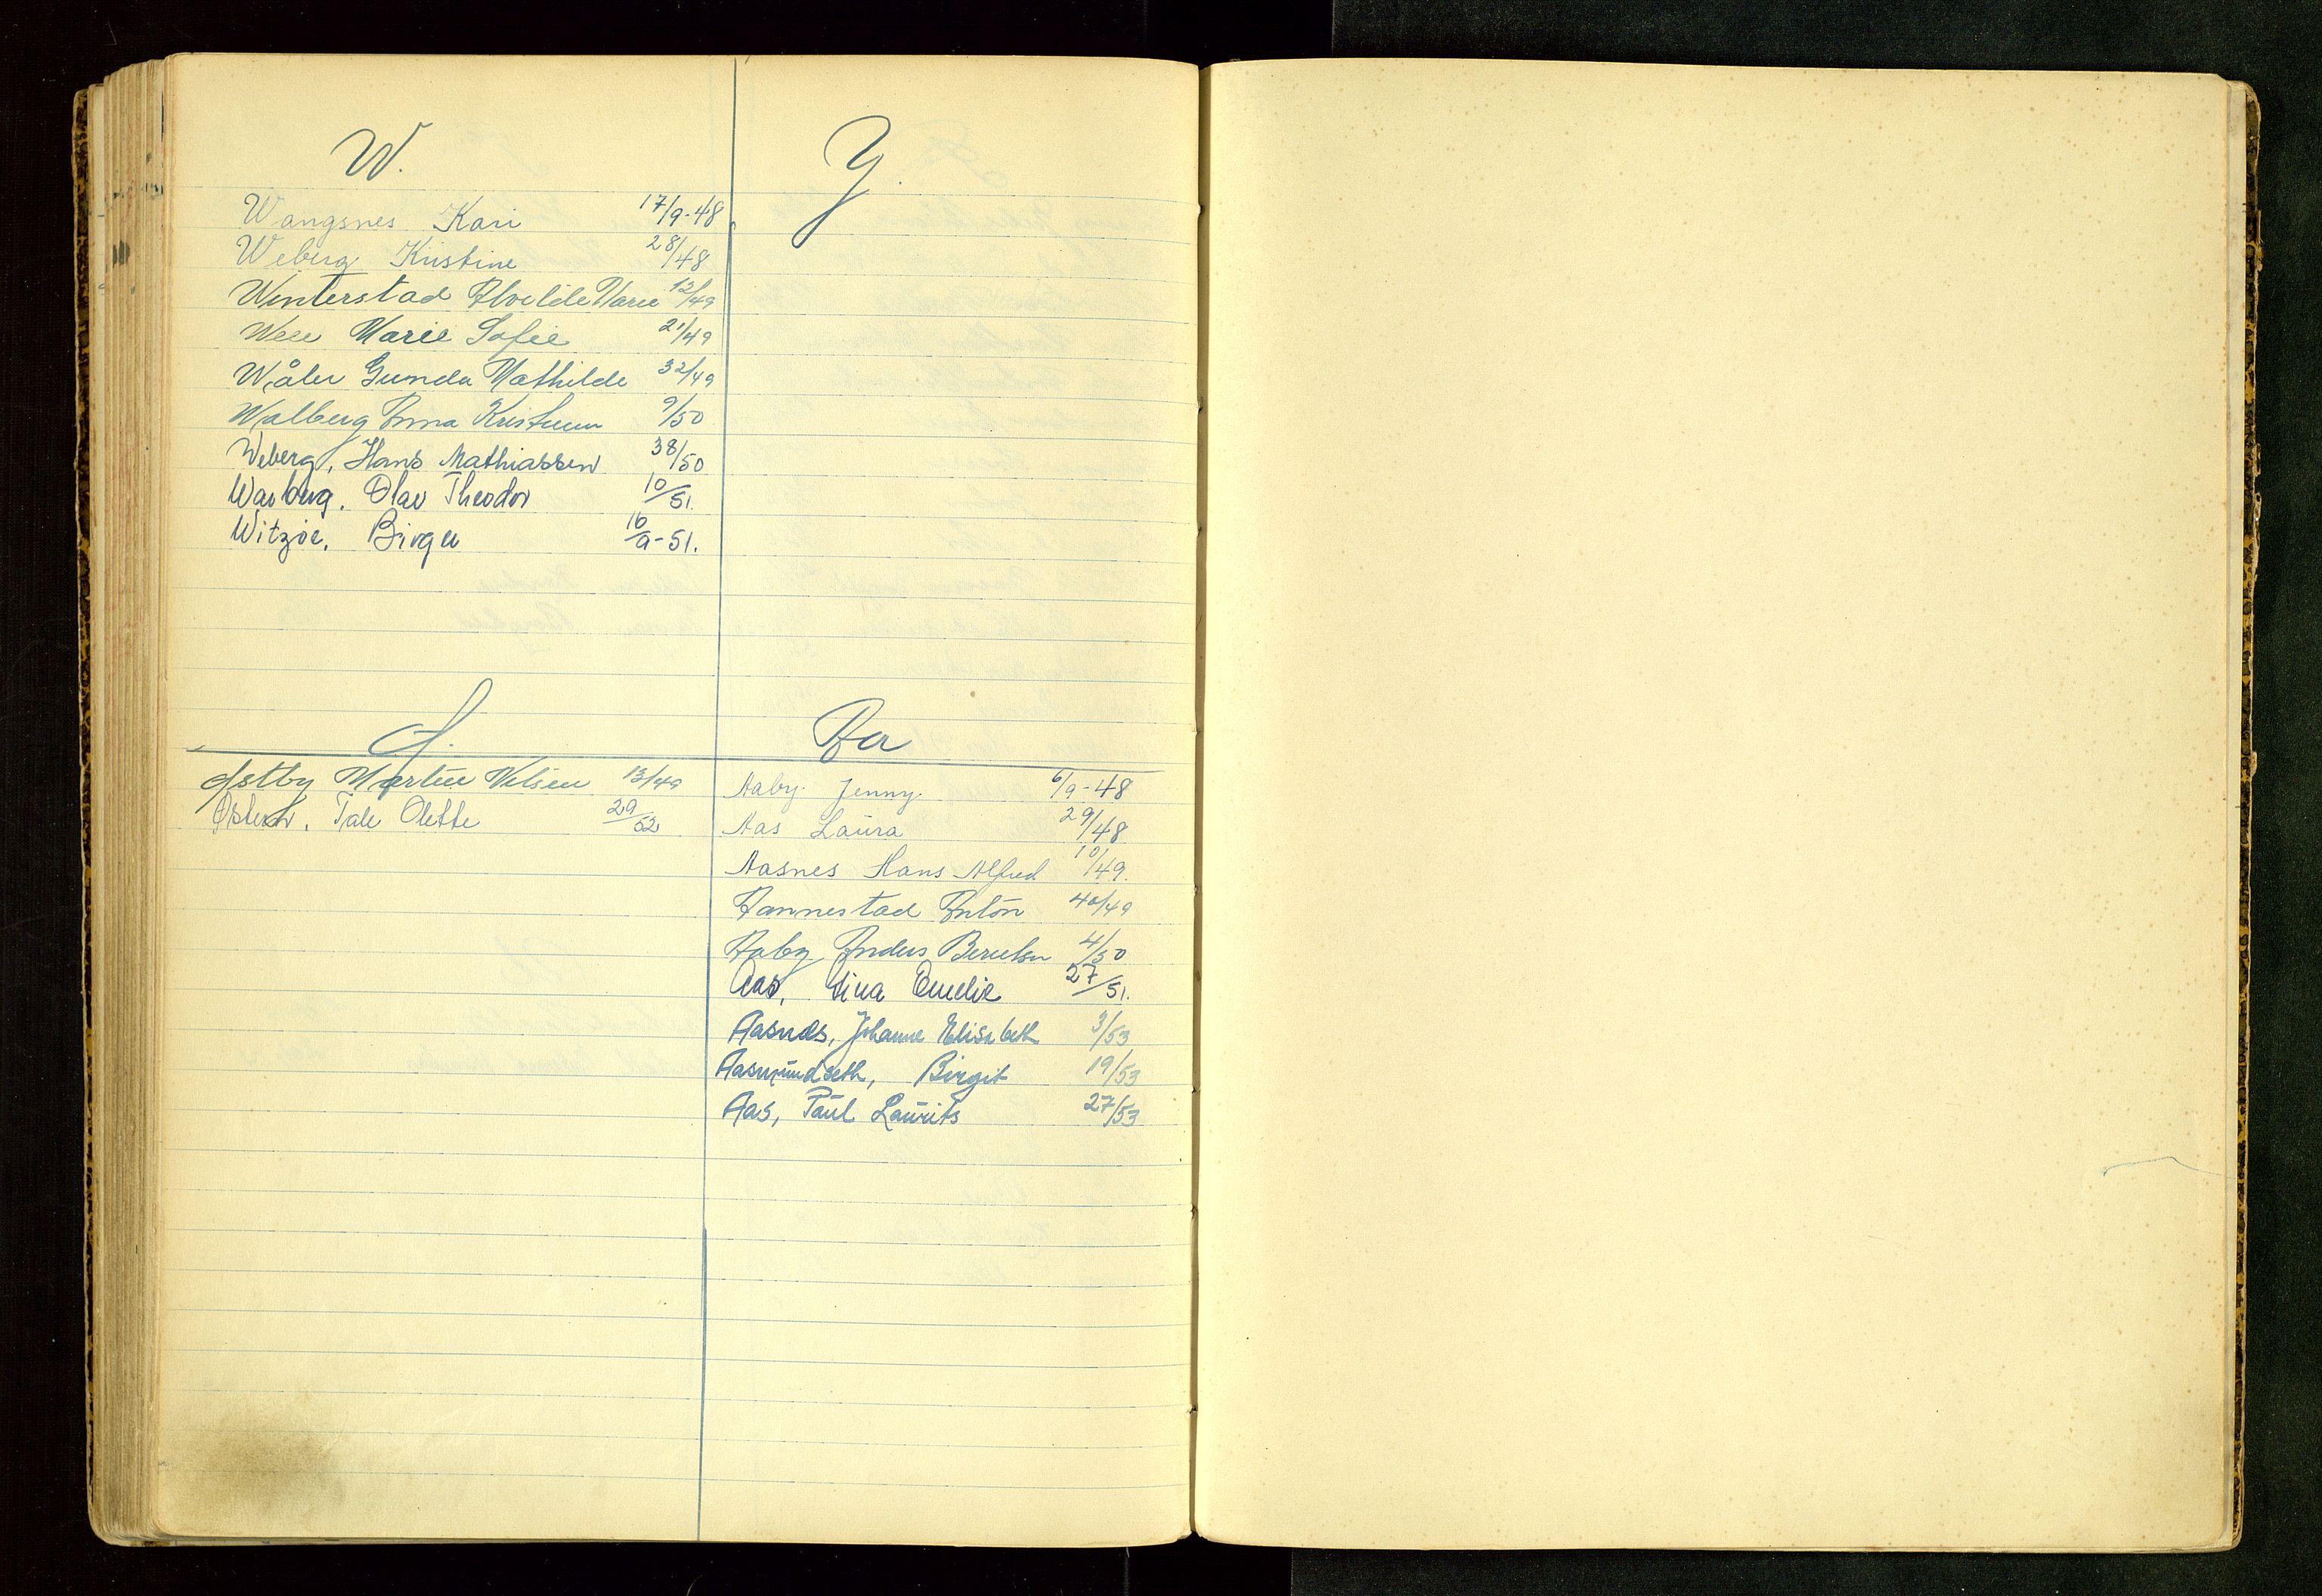 W.
Wangsnes Kari 17/9-48
Weberg Kristine 28/48
Winterstad Alvilde Marie 12/49
Marie Sofie 21/49
Wåler Gunda Mathilde 32/49
Walberg Anna 9/50
Weberg, Hans Mathiassen 38/50
Warberg, Olav Theodor 10/51.
Witzøe, Birger 16/9-51.
Y.
Ø.
Østby Martin Nilsen 13/49
Tale Olette 29/52
Aa
Aaby Jenny 6/9-48
Aas Laura 29/48
Aasnes Hans Alfred 10/49.
Aannestad Anton 40/49
Aaby Anders Berntsen 4/50
Aas, Lina Emelie 27/51.
Aasnes, Johanne Elisabeth 3/53
Aasmundseth, Birgit 19/53
Aas, Paul Laurits 27/53